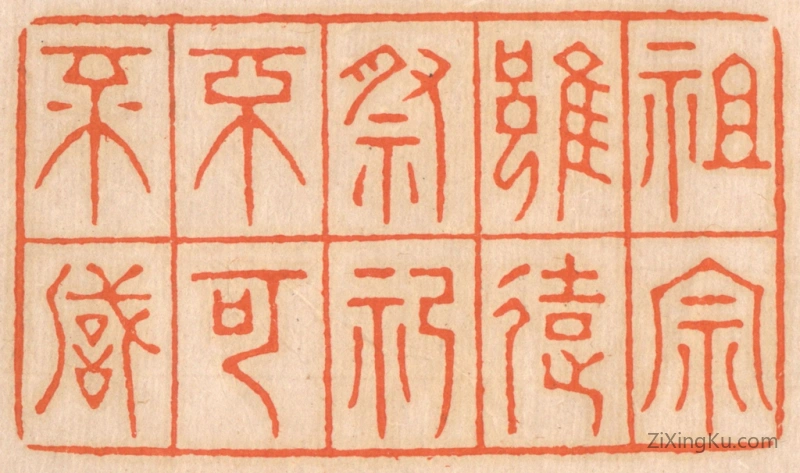 祖宗
雖遠
祭祀
不可
不誠
ZiXingKu.com